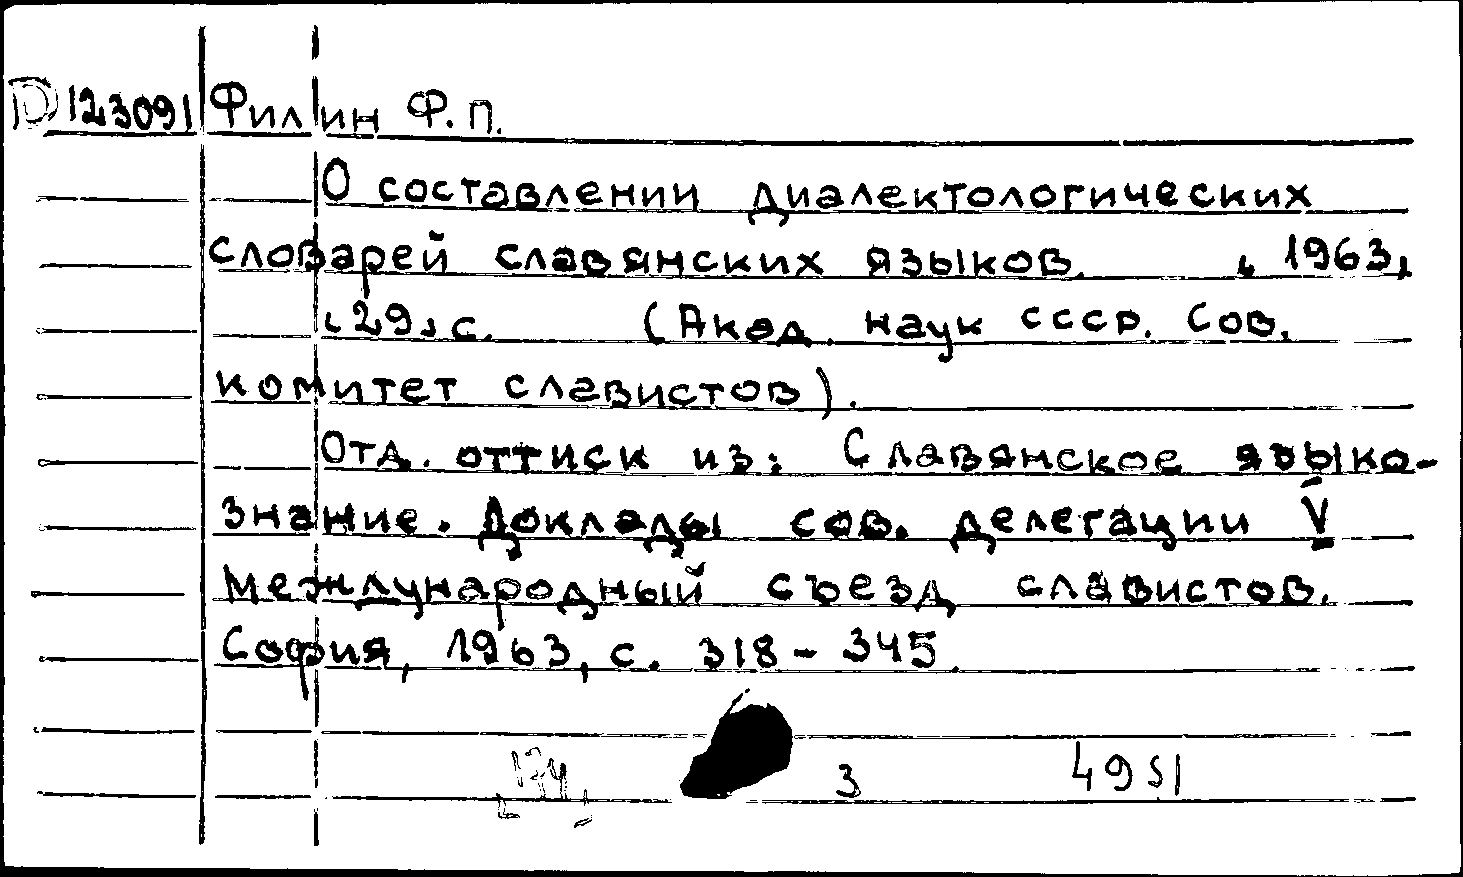 D 123091 Филин Ф.П.
О составлении диалектологических
словарей славянских языков. , 1963,
[29] с. (Акад. наук СССР. Сов.
комитет славистов).
Отд. оттиск из: Славянское языко-
знание. Доклады сов. делегации V
международный съезд славистов.
София, 1963, с. 318-345.
3 4951